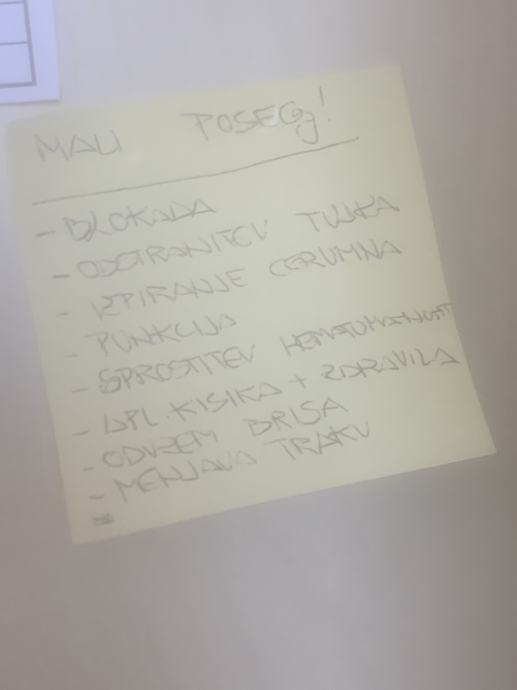 MALI POSEGI!
- BLOKADA
- ODSTRANITEV TUJKA
- IZPIRANJE CERUMNA
- PUNKCIJA
- SPROSTITEV
- APL. KISIKA + ZDRAVILA
- ODVZEM BRISA
- MENJAVA TRAKU